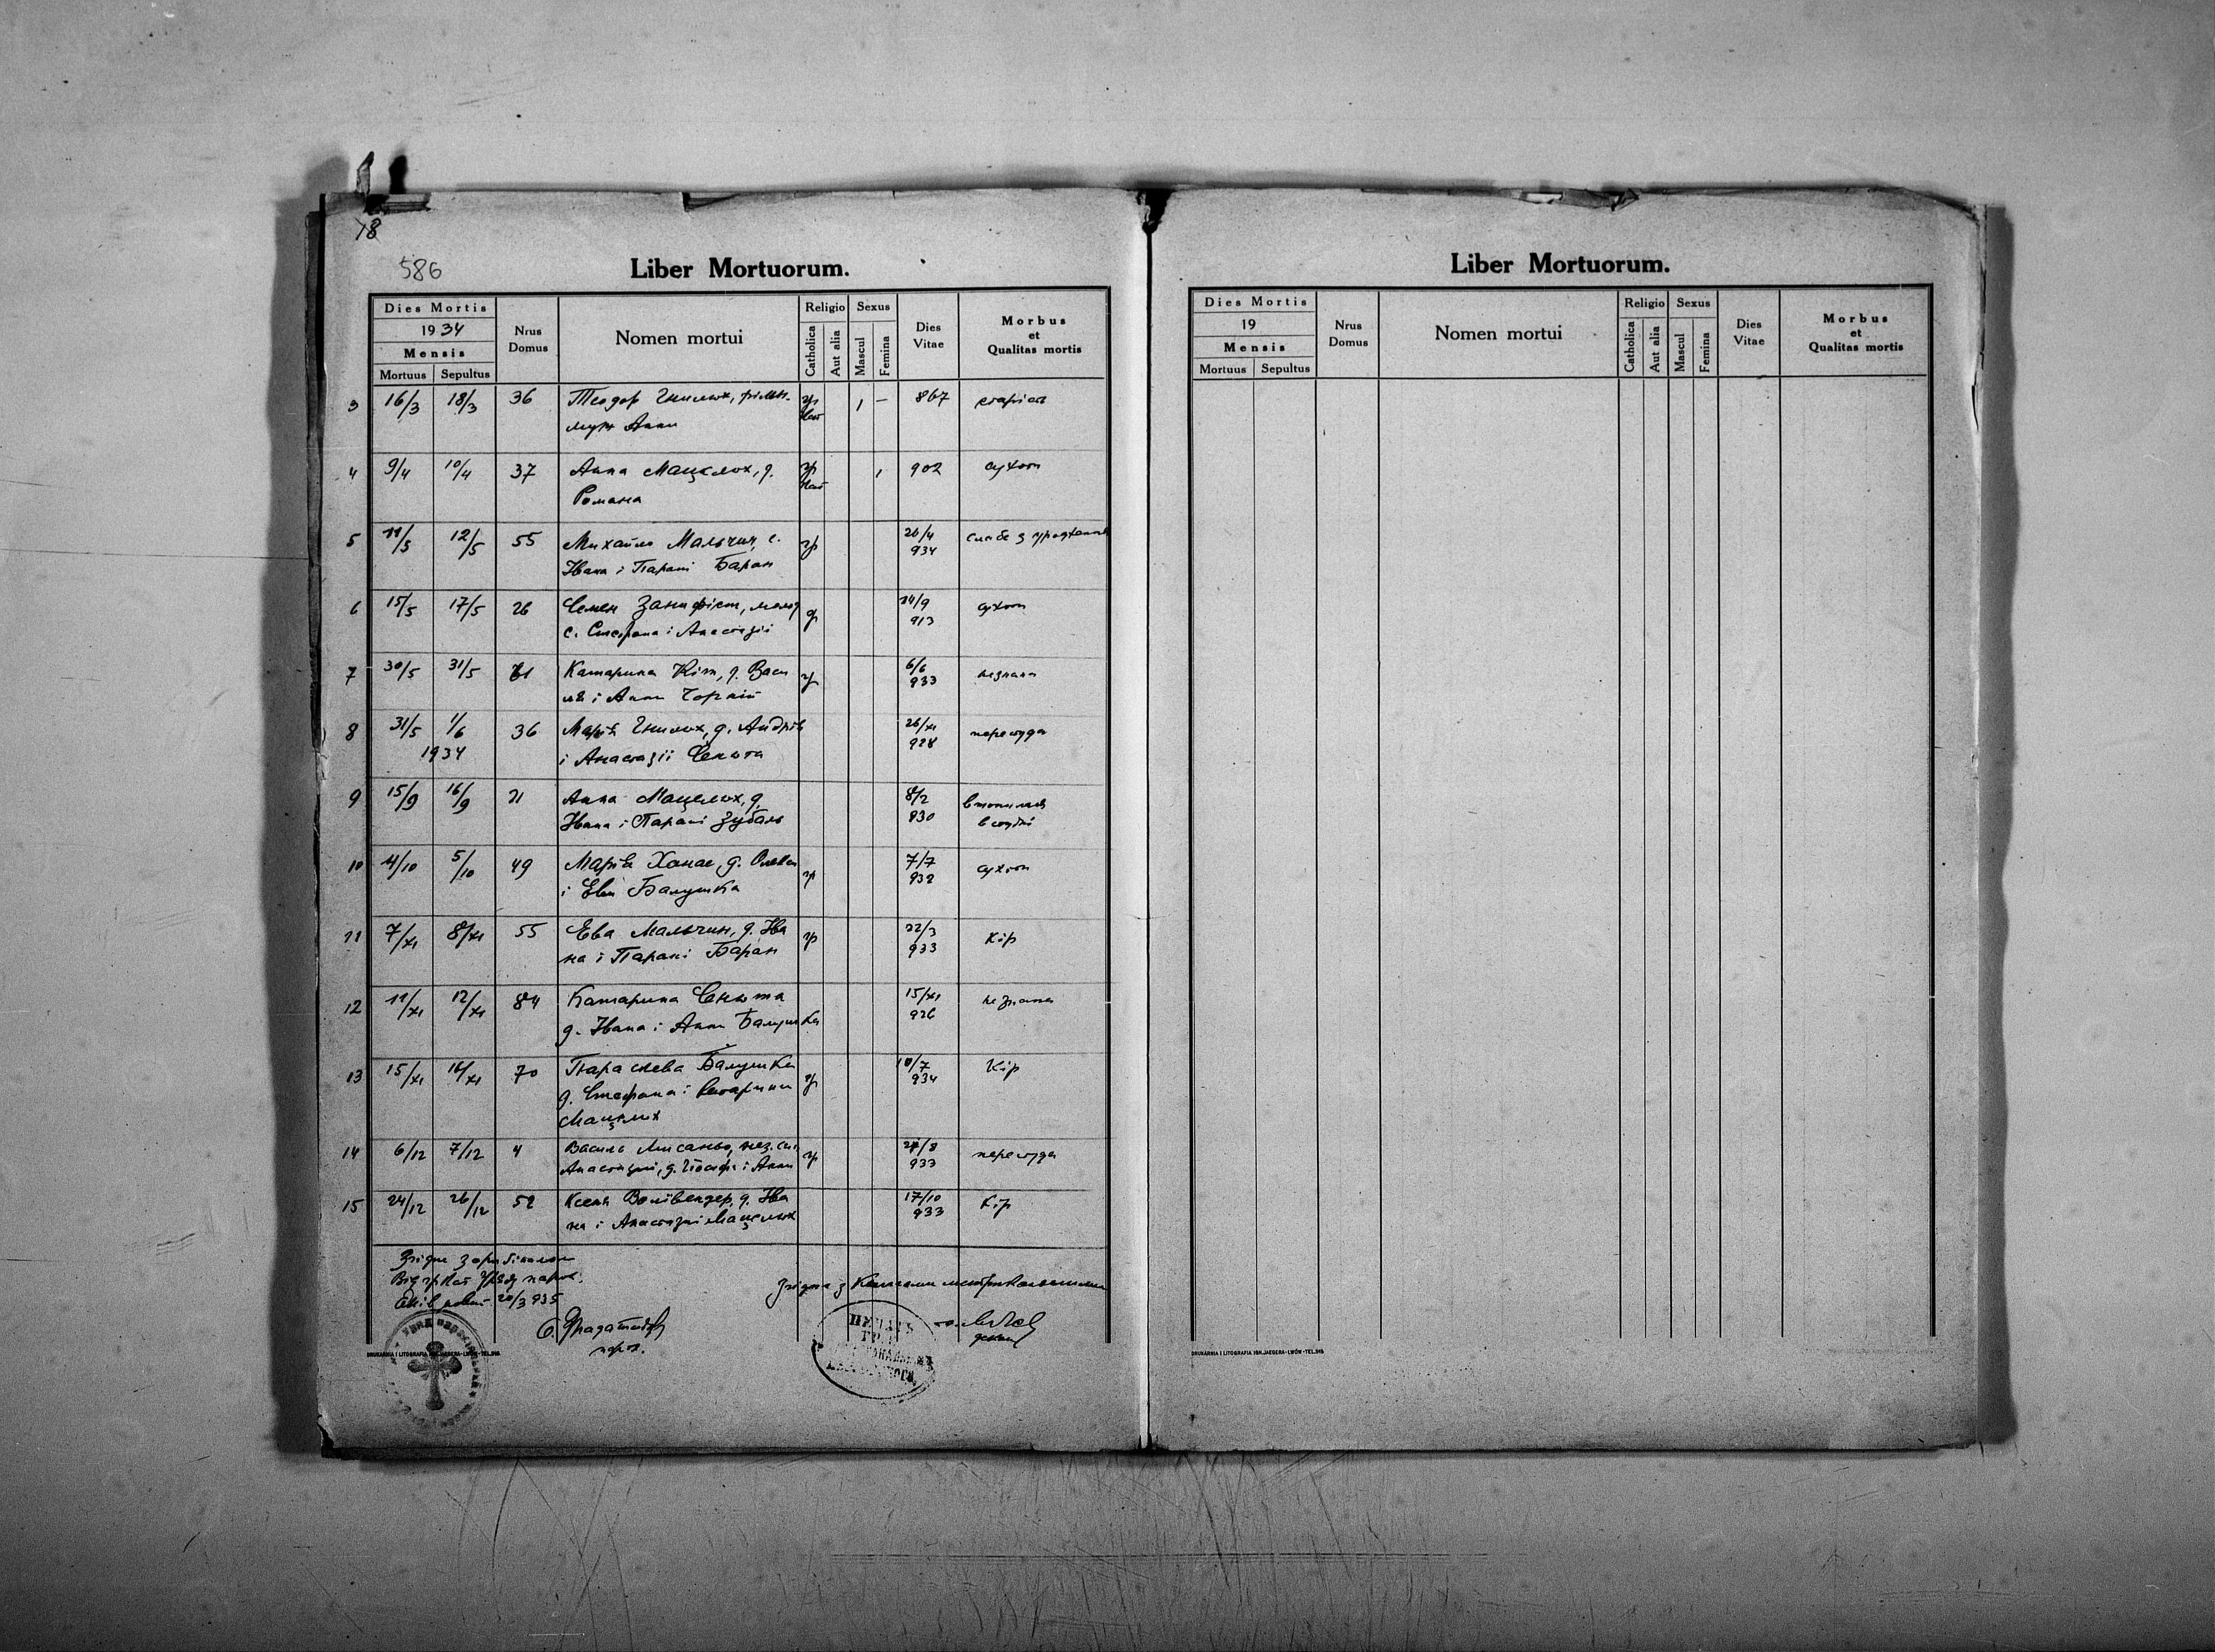 18
586
Liber Mortuorum.
Dies Mortis
1934
Mensis
Mortuus Sepultus
Nrus Domus
Nomen mortui
Religio
Catholica
Aut alia
Sexus
Mascul
Femina
Dies Vitae
Morbus et Qualitas mortis
3 16/3 18/3 36 Теодор Гнилюх, гр 1 — 867 старість
муж Анни кат
4 9/4 10/4 37 Анна Мацелюх, д. гр 1 902 сухоти
Романа кат
5 11/5 12/5 55 Михайло Мальчин, с. гр 26/4 слабе з
Івана і Парані Баран 934
6 15/5 17/5 26 Семен гр 24/9 сухоти
с. Стефана і Анастазії 913
7 30/5 31/5 61 Катарина Кіт, д. Васи гр 6/6 незнана
ля і Анни Чорній 933
8 31/5 1/6 36 Марія Гнилюх, д. Андрія 26/XI пересуда
1934 і Анастазії Сеньота 928
9 15/9 16/9 21 Анна Мацелюх, д. 8/2 втопилась
Івана і Парані Зубаль 930 в студні
10 4/10 5/10 49 Марія Ханас, д. гр 7/7 сухоти
і Еви Балушка 932
11 7/XI 8/XI 55 Ева Мальчин, д. Іва гр 22/3 кір
на і Парані Баран 933
12 11/XI 12/XI 84 Катарина Сеньота 15/XI незнана
д. Івана і Анни Балушка 926
13 15/XI 16/XI 70 Параскева Балушка 10/7 Кір
д. Стефана і Катарини гр 934
Мацелюх
14 6/12 7/12 4 Василь гр 24/8 пересуда
Анастазії, д. Йосифа і Анни 933
15 24/12 26/12 52 Ксеня д. Іва 17/10 Кір
на і Анастазії Мацелюх 933
Згідне з оригіналом
Від гр кат Уряду парох.
20/3 935
о.
парох.
Згідна з Книгами метрикальними
о.
декан
ПЕЧАТЬ
DRUKARNIA I LITOGRAFIA IGN.JAEGERA-LWÓW-TEL.316
Liber Mortuorum.
Dies Mortis
19
Mensis
Mortuus Sepultus
Nrus Domus
Nomen mortui
Religio
Catholica
Aut alia
Sexus
Mascul
Femina
Dies Vitae
Morbus et Qualitas mortis
DRUKARNIA I LITOGRAFIA IGN.JAEGERA-LWÓW-TEL.316